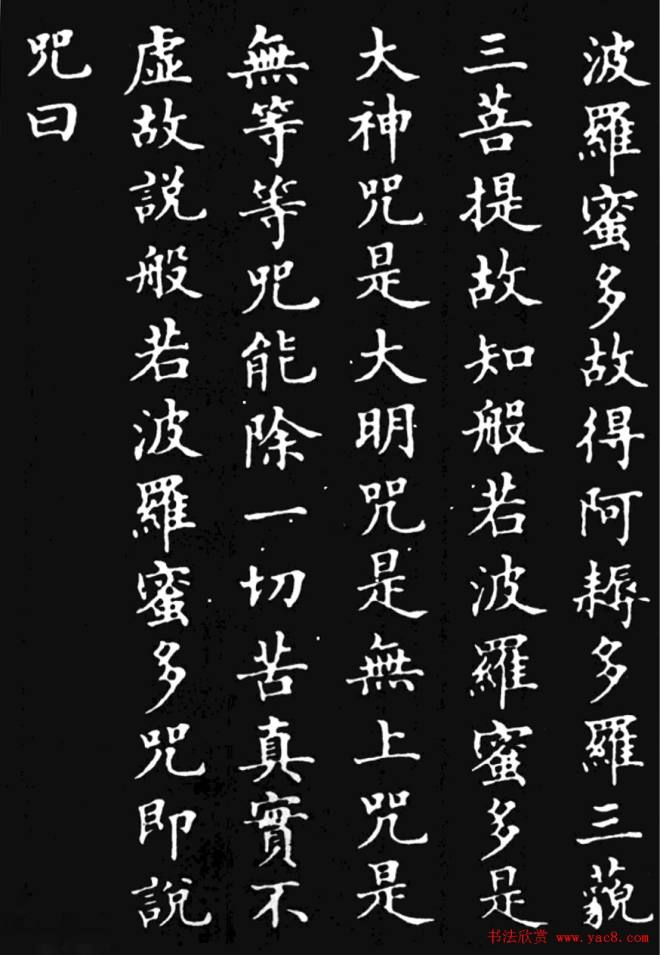 波羅蜜多故得阿耨多羅三藐
三菩提故知般若波羅蜜多是
大神咒是大明咒是無上咒是
無等等咒能除一切苦真實不
虛故説般若波羅蜜多咒即說
咒曰
书法欣赏 www.yac8.com